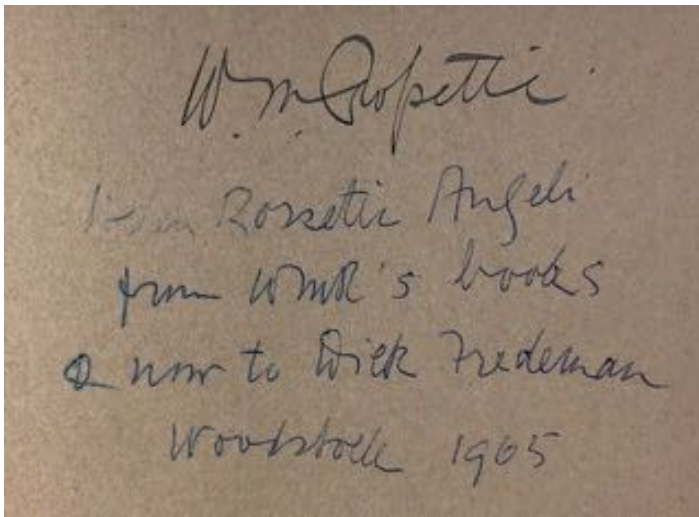 W. M. Rossetti.
Helen Rossetti Angeli
from WMR's books
& now to Dick Fredeman
Woodstock 1965